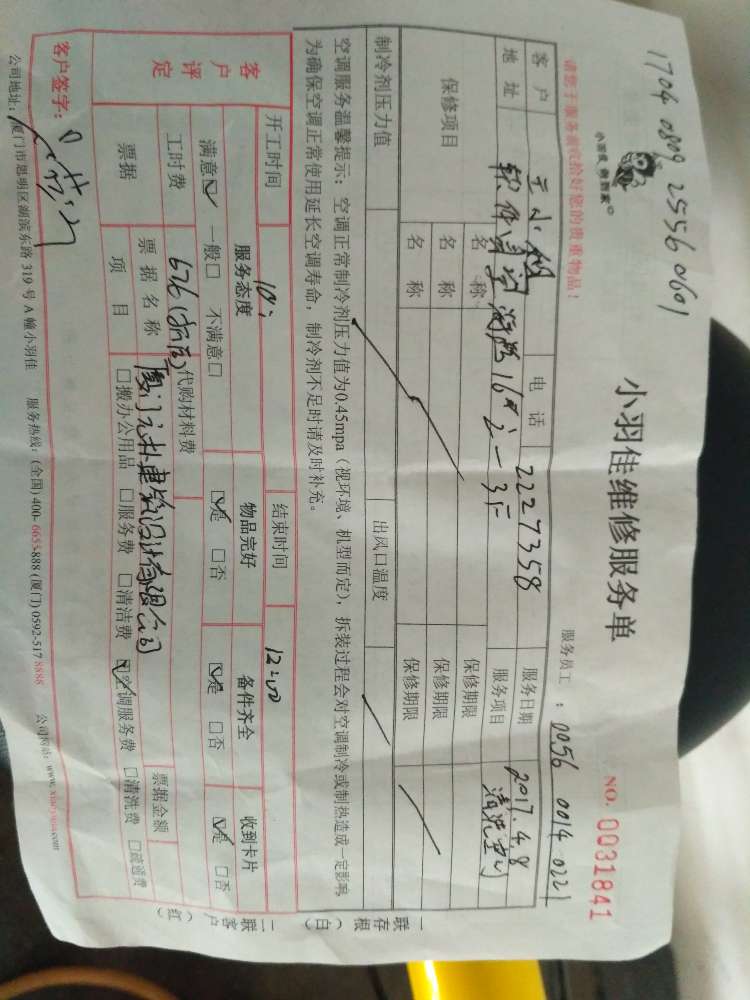 1704 0809 2556 0601
小羽佳 做到家
请您于服务前收拾好您的贵重物品！
小羽佳维修服务单
NO. 0031841
服务员工：0056 0014 0221
客户 王小姐 电话 2227358 服务日期 2017.4.8
地址 软件园 16 之一 3F 服务项目 清洗空调
保修项目 名称 保修期限
名称 保修期限
名称 保修期限
制冷剂压力值 出风口温度
空调服务温馨提示：空调正常制冷剂压力值为0.45mpa（视环境、机型而定），拆装过程会对空调制冷或制热造成一定影响
为确保空调正常使用延长空调寿命，制冷剂不足时请及时补充。
开工时间 结束时间 12:00
客户评定
服务态度 物品完好 备件齐全 收到卡片
满意☑ 一般□ 不满意□ ☑是 □否 ☑是 □否 ☑是 □否
工时费 676(折后) 代购材料费
票据 票据名称 票据金额
项目 □搬办公用品 □服务费 □清洁费 ☑空调服务费 □清洗费 □疏通费
客户签字：
公司地址：厦门市思明区湖滨东路 319 号 A 幢小羽佳 服务热线：(全国) 400-6655-888 (厦门) 0592-517 8888 公司网站：
一联存根（白）
二联客户（红）